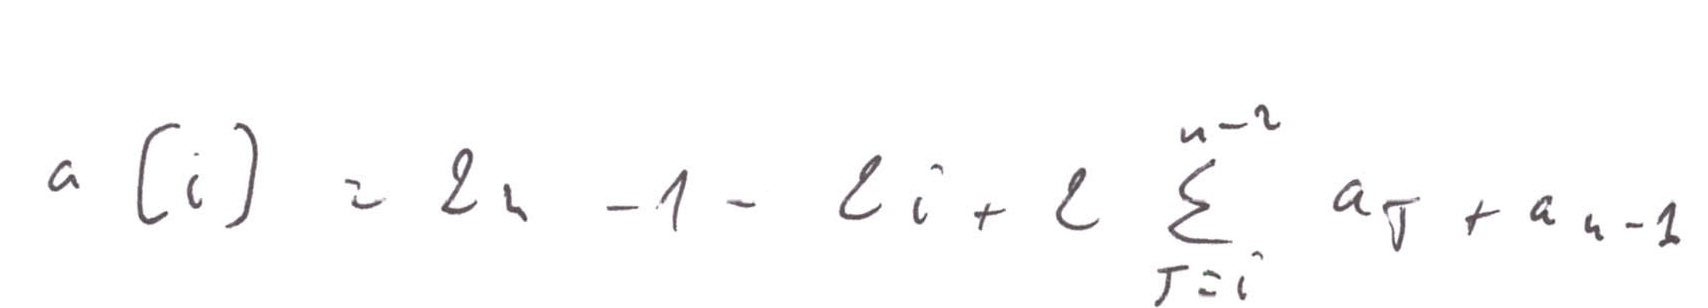 a[i] = 2n - 1 - 2i + 2 \sum_{J=i}^{n-2} a_J + a_{n-1}